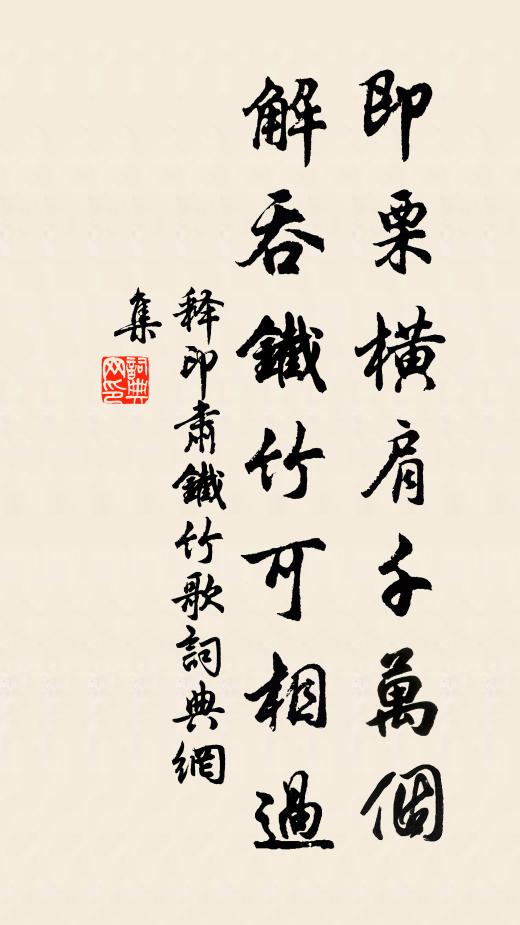 即栗橫肩千萬個
解吞鐵竹可相過
释印肅鐵竹歌詞典網
集
詞典网印